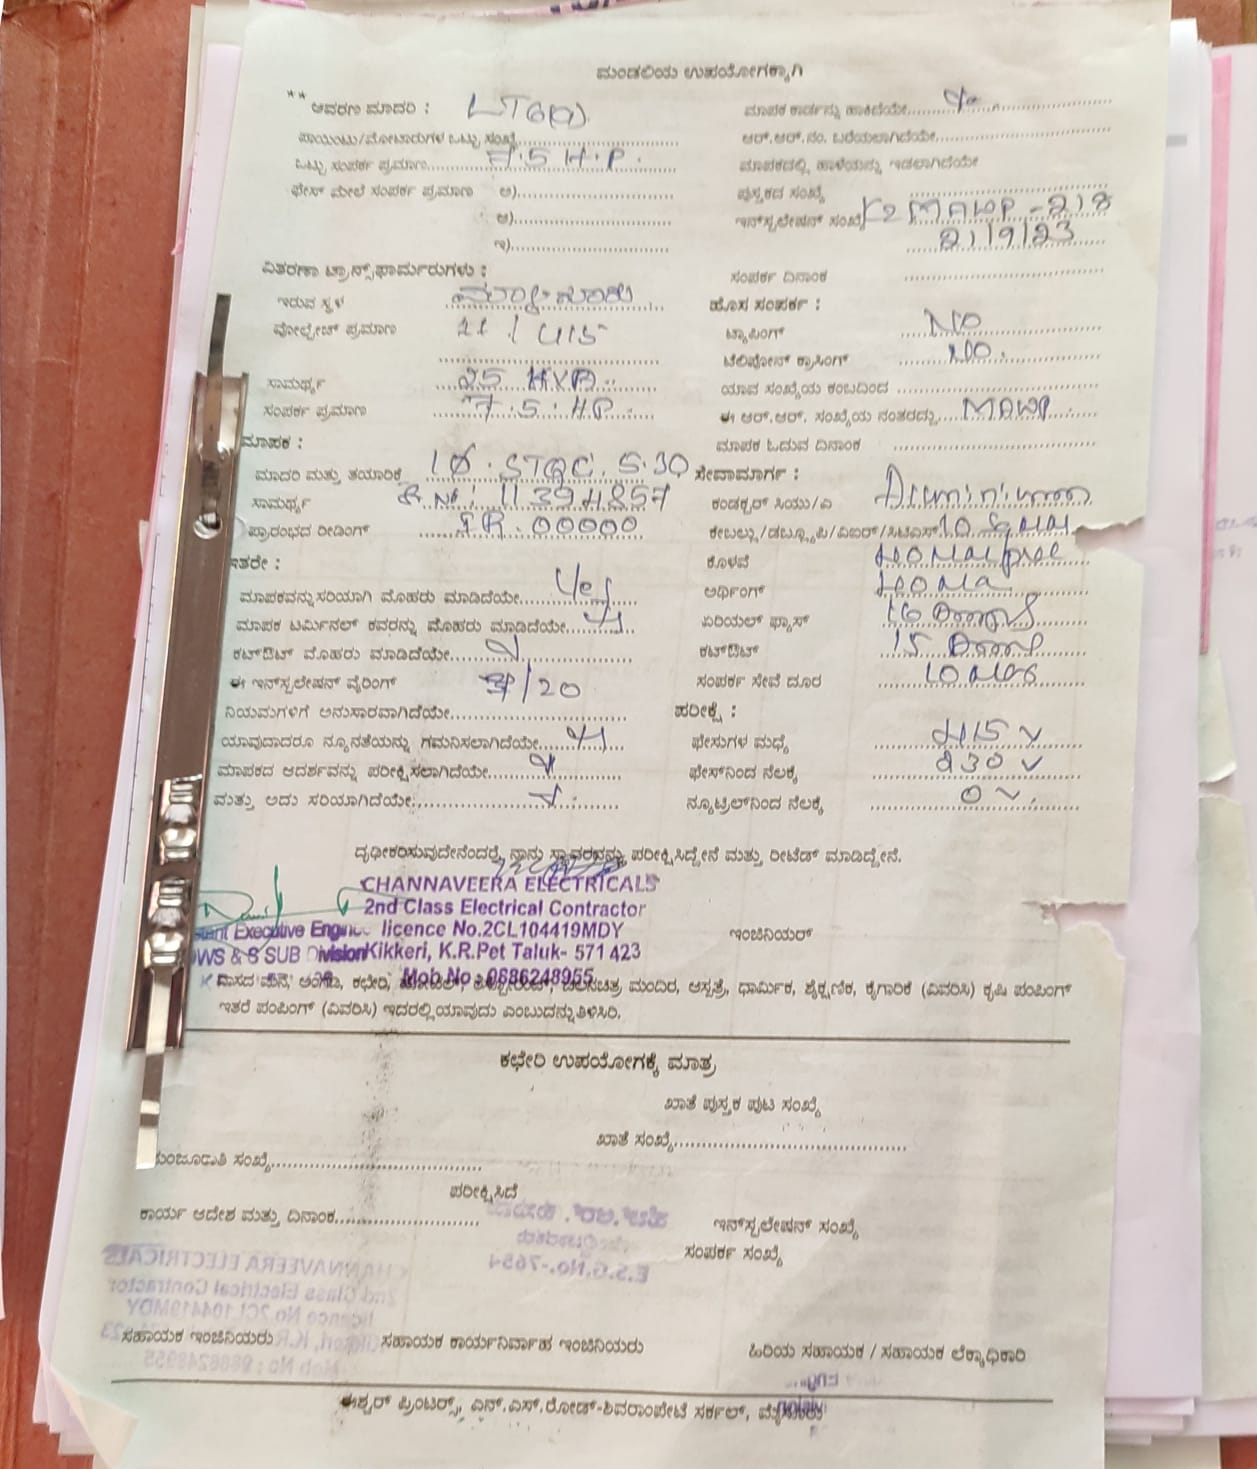 ಮಂಡಲಿಯ ಉಪಯೋಗಕ್ಕಾಗಿ
** ಆವರಣ ಮಾದರಿ : LT6(a)
ಮಾಪಕ ಕಾರ್ಡನ್ನು ಹಾಕಿದೆಯೇ
ಪಾಯಿಂಟು/ಮೋಟಾರುಗಳ ಒಟ್ಟು ಸಂಖ್ಯೆ
ಆರ್.ಆರ್.ನಂ. ಬರೆಯಲಾಗಿದೆಯೇ
ಒಟ್ಟು ಸಂಪರ್ಕ ಪ್ರಮಾಣ 7.5 H.P.
ಮಾಪಕದಲ್ಲಿ ಹಾಳೆಯನ್ನು ಇಡಲಾಗಿದೆಯೇ
ಫೇಸ್ ಮೇಲೆ ಸಂಪರ್ಕ ಪ್ರಮಾಣ ಅ)
ಪುಸ್ತಕದ ಸಂಖ್ಯೆ
ಆ)
ಇನ್‌ಸ್ಟಲೇಷನ್ ಸಂಖ್ಯೆ K2 MAWP-218
ಇ)
21/9/23
ವಿತರಣಾ ಟ್ರಾನ್ಸ್‌ಫಾರ್ಮರುಗಳು :
ಸಂಪರ್ಕ ದಿನಾಂಕ
ಇರುವ ಸ್ಥಳ
ಹೊಸ ಸಂಪರ್ಕ :
ವೋಲ್ಟೇಜ್ ಪ್ರಮಾಣ 11 / 415
ಟ್ಯಾಪಿಂಗ್ NO
ಟೆಲಿಫೋನ್ ಕ್ರಾಸಿಂಗ್ NO.
ಸಾಮರ್ಥ್ಯ 25 KVA
ಯಾವ ಸಂಖ್ಯೆಯ ಕಂಬದಿಂದ
ಸಂಪರ್ಕ ಪ್ರಮಾಣ 7.5. H.P.
ಈ ಆರ್.ಆರ್. ಸಂಖ್ಯೆಯ ನಂತರದ್ದು MAWP
ಮಾಪಕ :
ಮಾಪಕ ಓದುವ ದಿನಾಂಕ
ಮಾದರಿ ಮತ್ತು ತಯಾರಿಕೆ 1Ø. STQC. 5.30
ಸೇವಾಮಾರ್ಗ :
ಸಾಮರ್ಥ್ಯ S.No: 11394857
ಕಂಡಕ್ಟರ್ ಸಿಯು/ಎ
ಪ್ರಾರಂಭದ ರೀಡಿಂಗ್ IR. 00000
ಕೇಬಲ್ಲು/ಡಬ್ಲ್ಯೂಪಿ/ಎಐಆರ್/ಸಿಟಿಎಸ್ 10 Sqmm
ಇತರೇ :
ಕೊಳವೆ
ಮಾಪಕವನ್ನು ಸರಿಯಾಗಿ ಮೊಹರು ಮಾಡಿದೆಯೇ Yes
ಅರ್ಥಿಂಗ್
ಮಾಪಕ ಟರ್ಮಿನಲ್ ಕವರನ್ನು ಮೊಹರು ಮಾಡಿದೆಯೇ
ಏರಿಯಲ್ ಫ್ಯೂಸ್ 16 Amps
ಕಟ್‌ಔಟ್ ಮೊಹರು ಮಾಡಿದೆಯೇ
ಕಟ್‌ಔಟ್ 15 Amp
ಈ ಇನ್‌ಸ್ಟಲೇಷನ್ ವೈರಿಂಗ್ 3/20
ಸಂಪರ್ಕ ಸೇವೆ ದೂರ
ನಿಯಮಗಳಿಗೆ ಅನುಸಾರವಾಗಿದೆಯೇ
ಪರೀಕ್ಷೆ :
ಯಾವುದಾದರೂ ನ್ಯೂನತೆಯನ್ನು ಗಮನಿಸಲಾಗಿದೆಯೇ
ಫೇಸುಗಳ ಮಧ್ಯೆ 415 v
ಮಾಪಕದ ಆದರ್ಶವನ್ನು ಪರೀಕ್ಷಿಸಲಾಗಿದೆಯೇ
ಫೇಸ್‌ನಿಂದ ನೆಲಕ್ಕೆ 230 v
ಮತ್ತು ಅದು ಸರಿಯಾಗಿದೆಯೇ
ನ್ಯೂಟ್ರಲ್‌ನಿಂದ ನೆಲಕ್ಕೆ 0 v
ದೃಢೀಕರಿಸುವುದೇನೆಂದರೆ, ನಾನು ಸ್ಥಾವರವನ್ನು ಪರೀಕ್ಷಿಸಿದ್ದೇನೆ ಮತ್ತು ರೀಟೆಡ್ ಮಾಡಿದ್ದೇನೆ.
CHANNAVEERA ELECTRICALS
2nd Class Electrical Contractor
licence No.2CL104419MDY
Executive Engineer
ಇಂಜಿನಿಯರ್
Kikkeri, K.R.Pet Taluk- 571 423
SUB Division
Mob No : 9686248955
ವಾಸದ ಮನೆ, ಅಂಗಡಿ, ಕಛೇರಿ, ಚಲನಚಿತ್ರ ಮಂದಿರ, ಆಸ್ಪತ್ರೆ, ಧಾರ್ಮಿಕ, ಶೈಕ್ಷಣಿಕ, ಕೈಗಾರಿಕೆ (ವಿವರಿಸಿ) ಕೃಷಿ ಪಂಪಿಂಗ್
ಇತರೆ ಪಂಪಿಂಗ್ (ವಿವರಿಸಿ) ಇದರಲ್ಲಿ ಯಾವುದು ಎಂಬುದನ್ನು ತಿಳಿಸಿರಿ.
ಕಛೇರಿ ಉಪಯೋಗಕ್ಕೆ ಮಾತ್ರ
ಖಾತೆ ಪುಸ್ತಕ ಪುಟ ಸಂಖ್ಯೆ
ಖಾತೆ ಸಂಖ್ಯೆ
ಮಂಜೂರಾತಿ ಸಂಖ್ಯೆ
ಪರೀಕ್ಷಿಸಿದೆ
ಕಾರ್ಯ ಆದೇಶ ಮತ್ತು ದಿನಾಂಕ
ಇನ್‌ಸ್ಟಲೇಷನ್ ಸಂಖ್ಯೆ
ಸಂಪರ್ಕ ಸಂಖ್ಯೆ
ಸಹಾಯಕ ಇಂಜಿನಿಯರು
ಸಹಾಯಕ ಕಾರ್ಯನಿರ್ವಾಹ ಇಂಜಿನಿಯರು
ಹಿರಿಯ ಸಹಾಯಕ / ಸಹಾಯಕ ಲೆಕ್ಕಾಧಿಕಾರಿ
ಈಶ್ವರ್ ಪ್ರಿಂಟರ್ಸ್, ಎನ್.ಎಸ್.ರೋಡ್-ಶಿವರಾಂಪೇಟೆ ಸರ್ಕಲ್, ಮೈಸೂರು